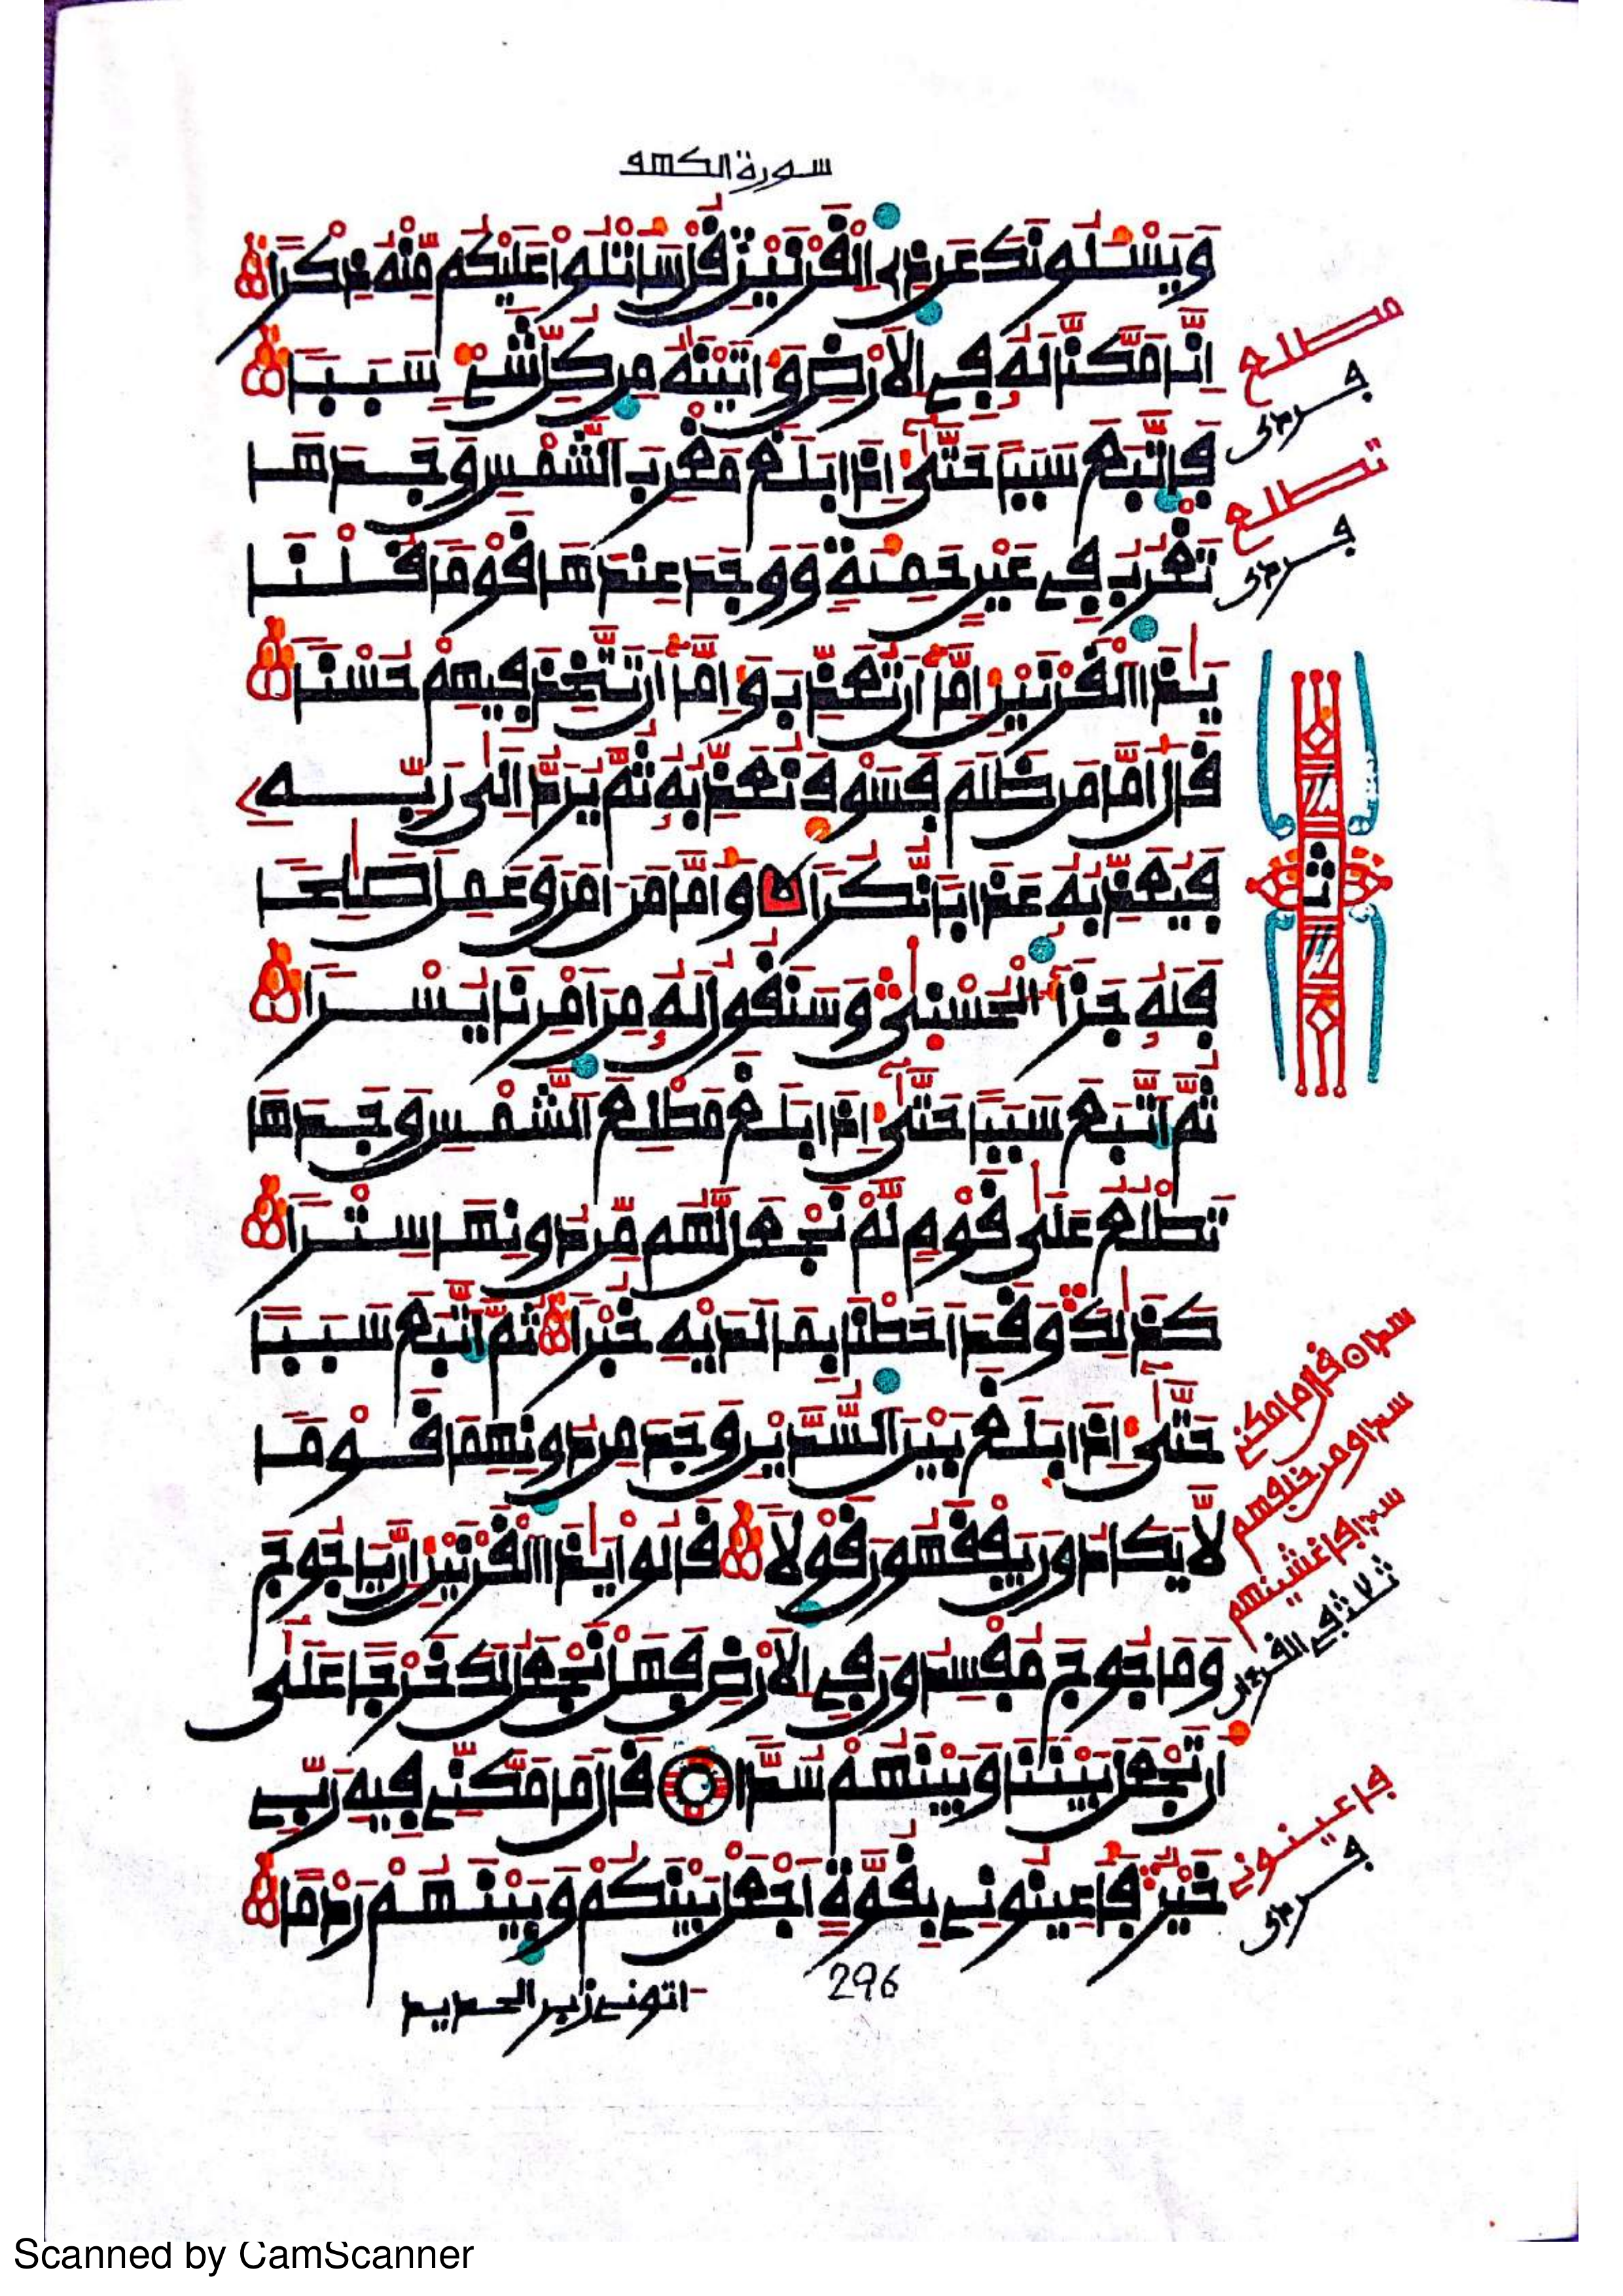 سورة الكهف
وَيَسْـَٔلُونَكَ عَن ذِي اِلْقَرْنَيْنِ قُلْ سَأَتْلُوا عَلَيْكُم مِّنْهُ ذِكْرًا
اِنَّا مَكَّنَّا لَهُۥ فِي اِلَارْضِ وَءَاتَيْنَٰهُ مِن كُلِّ شَےْءٖ سَبَبٗا
فَاتَّبَعَ سَبَبًا حَتَّىٰٓ إِذَا بَلَغَ مَغْرِبَ اَلشَّمْسِ وَجَدَهَا
تَغْرُبُ فِي عَيْنٍ حَمِئَةٖ وَوَجَدَ عِندَهَا قَوْمٗا قُلْنَا
يَٰذَا اَلْقَرْنَيْنِ إِمَّآ أَن تُعَذِّبَ وَإِمَّآ أَن تَتَّخِذَ فِيهِمْ حُسْنٗا
قَالَ أَمَّا مَن ظَلَمَ فَسَوْفَ نُعَذِّبُهُۥ ثُمَّ يُرَدُّ إِلَىٰ رَبِّهِۦ
فَيُعَذِّبُهُۥ عَذَابٗا نُّكُرٗا وَأَمَّا مَنَ اٰمَنَ وَعَمِلَ صَٰلِحٗا
فَلَهُۥ جَزَآءُ اُلْحُسْنَىٰ وَسَنَقُولُ لَهُۥ مِنَ اَمْرِنَا يُسْرٗا
ثُمَّ اَتَّبَعَ سَبَبًا حَتَّىٰٓ إِذَا بَلَغَ مَطْلِعَ اَلشَّمْسِ وَجَدَهَا
تَطْلُعُ عَلَىٰ قَوْمٖ لَّمْ نَجْعَل لَّهُم مِّن دُونِهَا سِتْرٗا
كَذَٰلِكَ وَقَدَ اَحَطْنَا بِمَا لَدَيْهِ خُبْرٗا ثُمَّ اَتَّبَعَ سَبَبًا
حَتَّىٰٓ إِذَا بَلَغَ بَيْنَ اَلسُّدَّيْنِ وَجَدَ مِن دُونِهِمَا قَوْمٗا
لَّا يَكَادُونَ يَفْقَهُونَ قَوْلٗا قَالُوا يَٰذَا اَلْقَرْنَيْنِ إِنَّ يَاجُوجَ
وَمَاجُوجَ مُفْسِدُونَ فِي اِلَارْضِ فَهَلْ نَجْعَلُ لَكَ خَرْجًا عَلَىٰٓ
أَن تَجْعَلَ بَيْنَنَا وَبَيْنَهُمْ سُدّٗا قَالَ مَا مَكَّنِّي فِيهِ رَبِّي
خَيْرٞ فَأَعِينُونِي بِقُوَّةٍ اَجْعَلْ بَيْنَكُمْ وَبَيْنَهُمْ رَدْمًا
اتونے زبر الحديد
296
مطلع
تطلع
ثلاث في القرءان
فاعينونے
Scanned by CamScanner